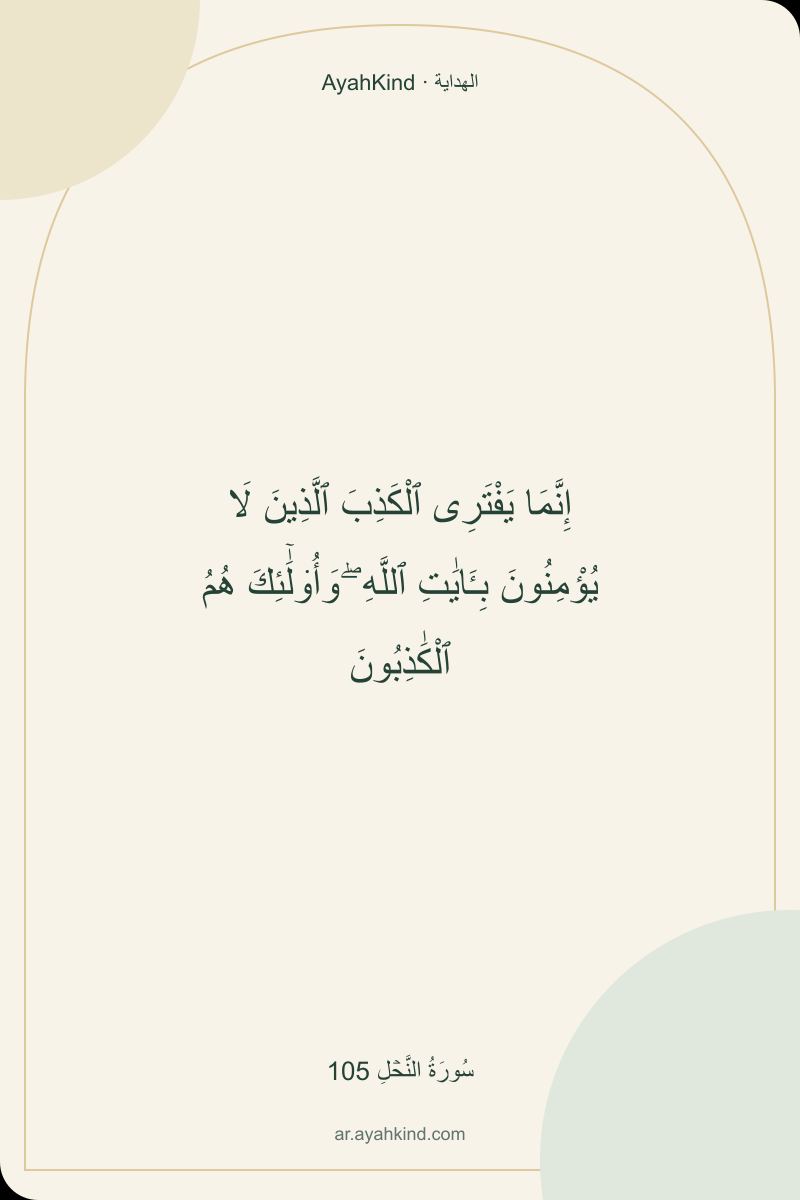 AyahKind · الهداية
إِنَّمَا يَفْتَرِى ٱلْكَذِبَ ٱلَّذِينَ لَا
يُؤْمِنُونَ بِـَٔايَٰتِ ٱللَّهِ ۖ وَأُو۟لَٰٓئِكَ هُمُ
ٱلْكَٰذِبُونَ
سُورَةُ النَّحۡلِ 105
ar.ayahkind.com